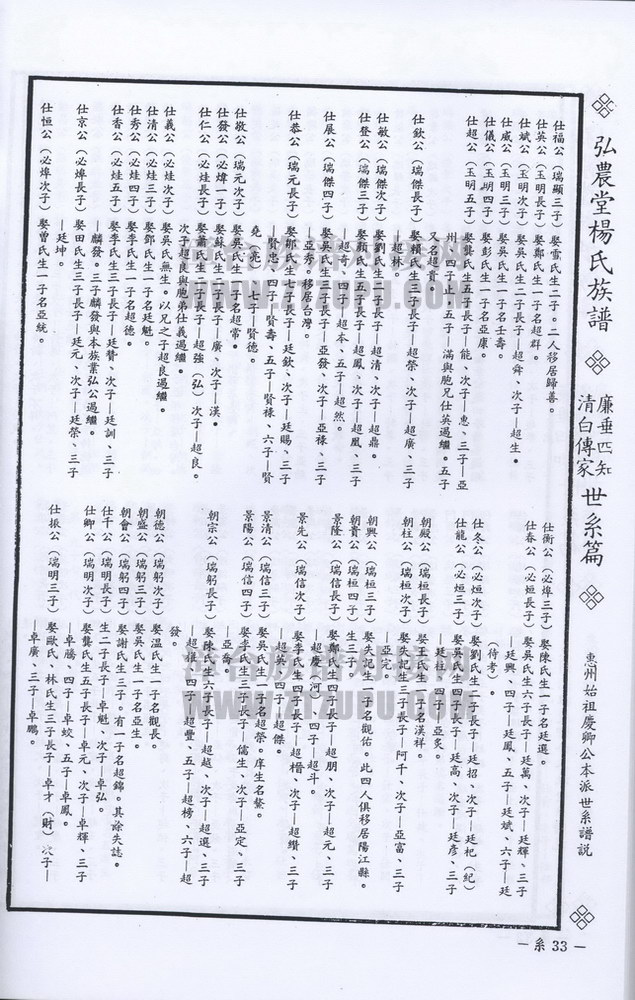 弘農堂楊氏族譜
廉垂四知
清白傳家
世系篇
惠州始祖慶卿公本派世系譜說
仕福公（瑞顯三子）娶雷氏生二子。二人移居歸善。
仕英公（玉明長子）娶鄭氏生一子名超群。
仕斌公（玉明次子）娶吳氏生二子長子—超舜、次子—超生。
仕威公（玉明三子）娶龔氏生一子名壬壽。
仕儀公（玉明四子）娶彭氏生一子名亞康。
仕超公（玉明五子）娶龔氏生五子長子—能、次子—惠、三子—亞
州、四子止、五子—滿與胞兄仕英過繼。五子
又名超貴。
仕欽公（瑞傑長子）娶賴氏生三子長子—超榮、次子—超廣、三子
—超林。
仕敏公（瑞傑次子）娶劉氏生二子長子—超清、次子—超鼎。
仕登公（瑞傑三子）娶顏氏生五子長子—超鳳、次子—超凰、三子
—超奇、四子—超本、五子—超然。
仕展公（瑞傑四子）娶吳氏生三子長子—亞發、次子—亞祿、三子
—亞秀，移居台灣。
仕恭公（瑞元長子）娶鄔氏生七子長子—廷欽、次子—廷賜、三子
—賢忠、四子—賢壽、五子—賢祿、六子—賢
堯（亮）、七子—賢德。
仕敬公（瑞元次子）娶吳氏生一子名超常。
仕發公（必煒一子）娶蘇氏生二子長子—廣、次子—漢。
仕仁公（必烓長子）娶蕭氏生二子長子—超強（弘）次子—超良。
次子超良與胞弟仕義過繼。
仕義公（必烓次子）娶吳氏無生。以兄之子超良過繼。
仕清公（必烓三子）娶鄧氏生一子名廷魁。
仕秀公（必烓四子）娶李氏生一子名超德。
仕香公（必烓五子）娶李氏生三子長子—廷贊、次子—廷訓、三子
—麟發。三子麟發與本族業弘公過繼。
仕京公（必焯長子）娶田氏生三子長子—廷元、次子—廷榮、三子
—廷坤。
仕恒公（必焯次子）娶曾氏生一子名亞統。
仕衡公（必焯三子）娶陳氏生一子名廷選。
仕春公（必烜長子）娶吳氏生六子長子—廷萬、次子—廷輝、三子
—廷興、四子—廷鳳、五子—廷斌、六子—廷
（待考）。
仕冬公（必烜次子）娶劉氏生二子長子—廷招、次子—廷祀（紀）
仕龍公（必烜三子）娶吳氏生四子長子—廷高、次子—廷彥、三子
—廷柱、四子—亞炙。
朝殿公（瑞桓長子）娶王氏生一子名漢祥。
朝柱公（瑞桓次子）娶失記生三子長子—阿千、次子—亞富、三子
—亞定。
朝興公（瑞桓三子）娶失記生一子名觀佑。此四人俱移居陽江縣。
朝貴公（瑞桓四子）生三子
景隆公（瑞信長子）娶鄭氏生四子長子—超朋、次子—超元、三子
—超慶（河）、四子—超斗。
景先公（瑞信次子）娶李氏生四子長子—超楷、次子—超纘、三子
—超英、四子—超傑。
景清公（瑞信三子）娶吳氏生一子名超榮。庠生名鰲。
景陽公（瑞信四子）娶李氏生三子長子—儒生、次子—亞定、三子
—亞喬。
朝宗公（瑞躬長子）娶陳氏生六子長子—超越、次子—超選、三子
—超雄、四子—超豐、五子—超榜、六子—超
發。
朝德公（瑞躬次子）娶溫氏生一子名觀長。
朝盛公（瑞躬三子）娶吳氏生一子名亞生。
朝會公（瑞躬四子）娶謝氏生三子。有一子名超錦。其餘失誌。
仕千公（瑞明長子）生二子長子—卓魁、次子—卓弘。
仕卿公（瑞明次子）娶龔氏生五子長子—卓元、次子—卓輝、三子
—卓騰、四子—卓蛟、五子—卓鳳。
仕振公（瑞明三子）娶歐氏、林氏生三子長子—卓才（財）次子—
卓廣、三子—卓鵬。
—系 33—